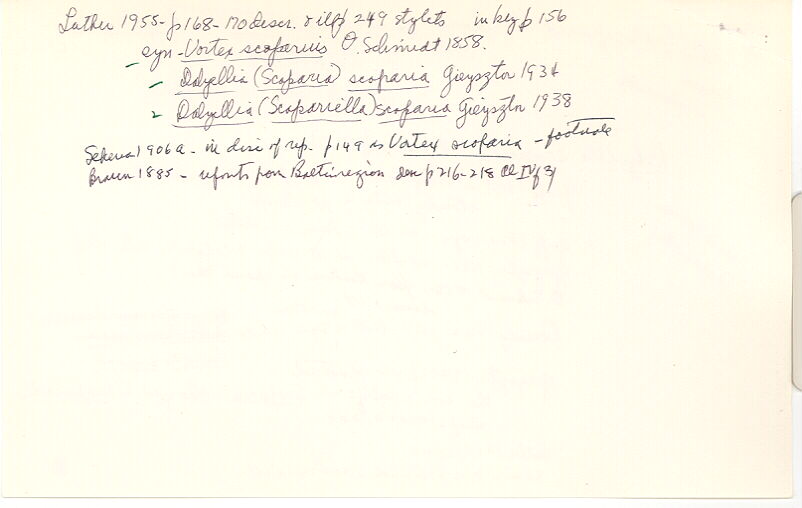 Luther 1955 - p 168 - 170 descr. & ilf p 249 stylets in key p 156
syn - Vortex scoparius O. Schmidt 1858.
- Dalyellia (Scoparia) scoparia Gieysztor 1934
- Dalyellia (Scoparriella) scoparia Gieysztor 1938
Sekera 1906a - in disc of rep. p 149 as Vortex scoparia - footnote
Braun 1885 - reports from Baltic region p 216-218